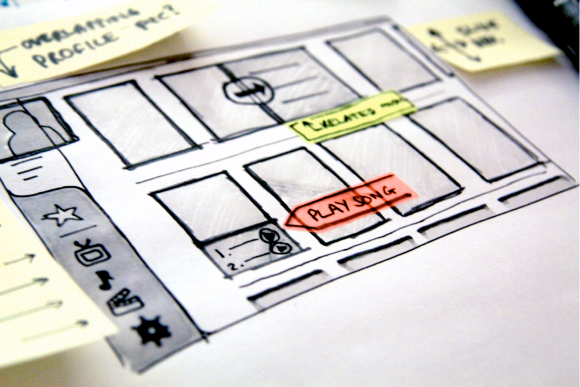 OVERLAPPING
PROFILE PIC?
RELATED
PLAY SONG
1.
2.